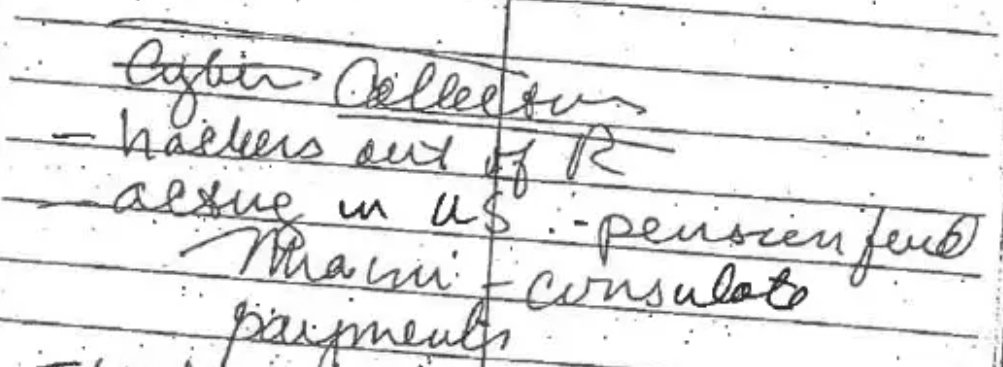 Cyber Collection
- hackers out of R
- active in US - pension fund
Miami - consulate
payments